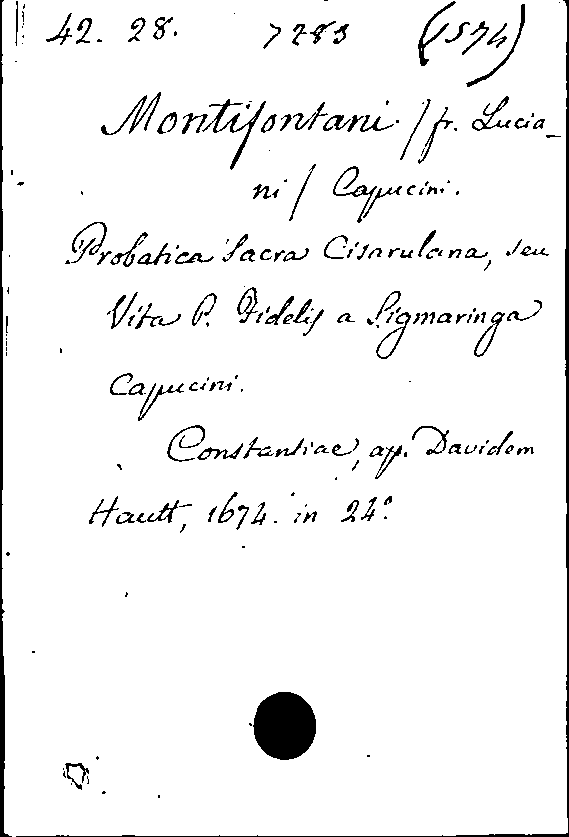 42. 28. 7283 (1574)
Montifontani / fr. Lucia-
ni / Capucini.
Probatica Sacra Cisarulana, seu
Vita P. Fidelis a Sigmaringa
Capucini.
Constantiae, ap. Davidem
Hautt, 1674. in 24°.